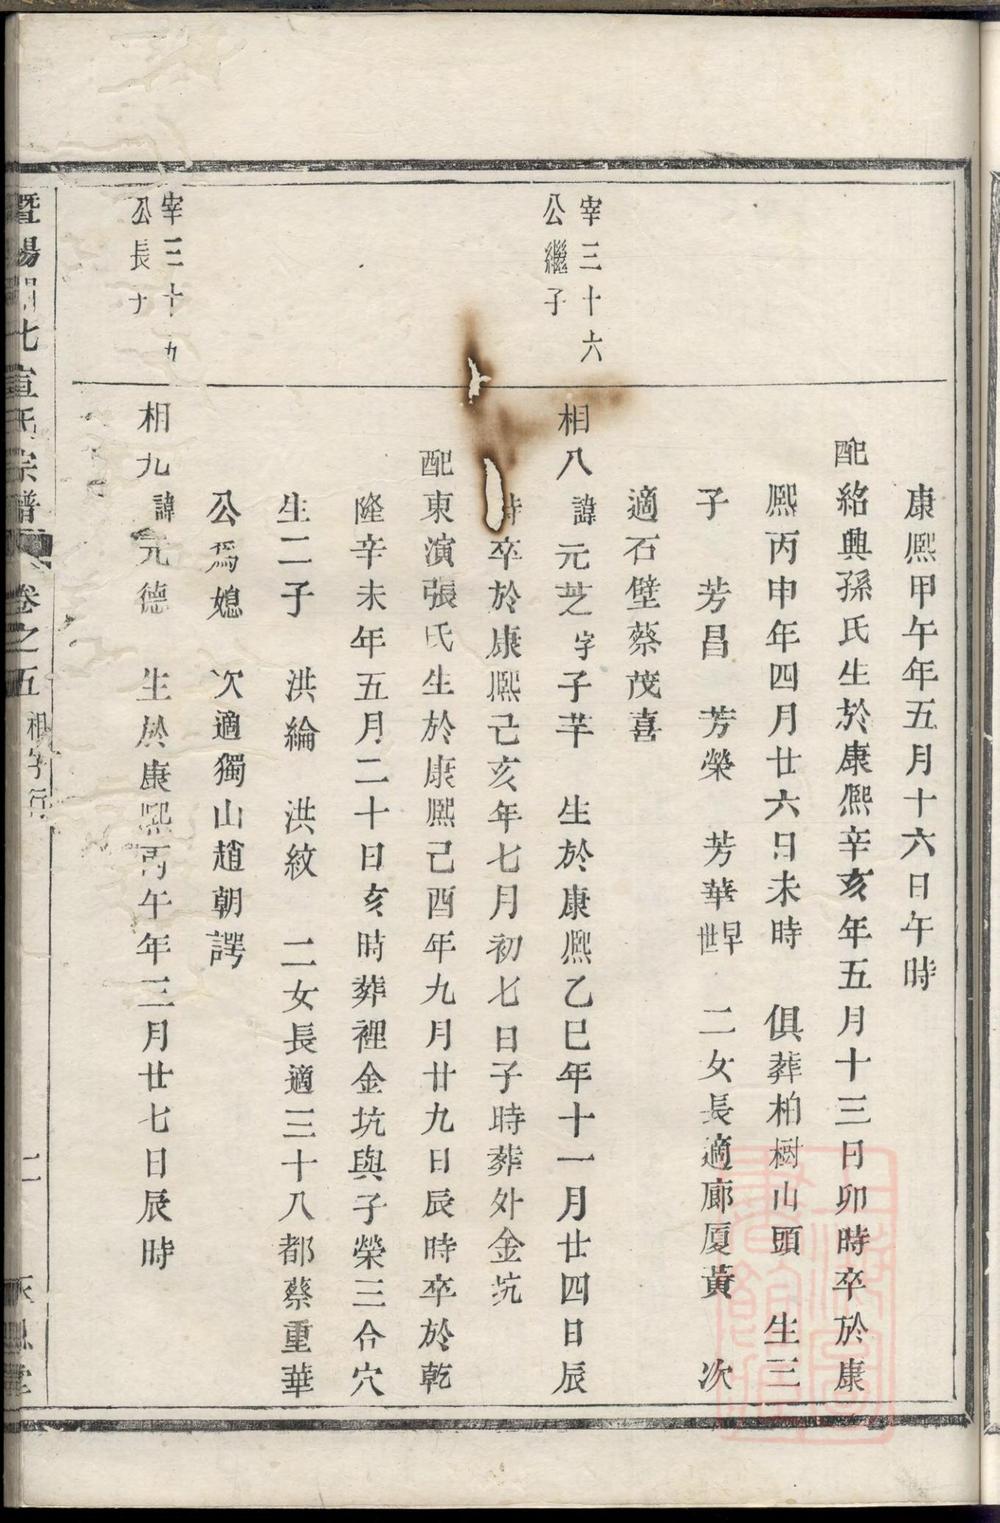 康熙甲午年五月十六日午時
配紹興孫氏生於康熙辛亥年五月十三日卯時卒於康
熙丙申年四月廿六日未時 俱葬柏樹山頭 生三
子 芳昌 芳榮 芳華早世 二女長適廊廈黃 次
適石壁蔡茂喜
宰三十六
公繼子
相八 諱元芝字子芊 生於康熙乙巳年十一月廿四日辰
時卒於康熙己亥年七月初七日子時葬外金坑
配東演張氏生於康熙己酉年九月廿九日辰時卒於乾
隆辛未年五月二十日亥時葬裡金坑與子榮三合穴
生二子 洪綸 洪紋 二女長適三十八都蔡重華
公爲媳 次適獨山趙朝諤
宰三十九
公長子
相九 諱元德 生於康熙丙午年三月廿七日辰時
暨陽 北宣氏宗譜 卷之五 相字行 二